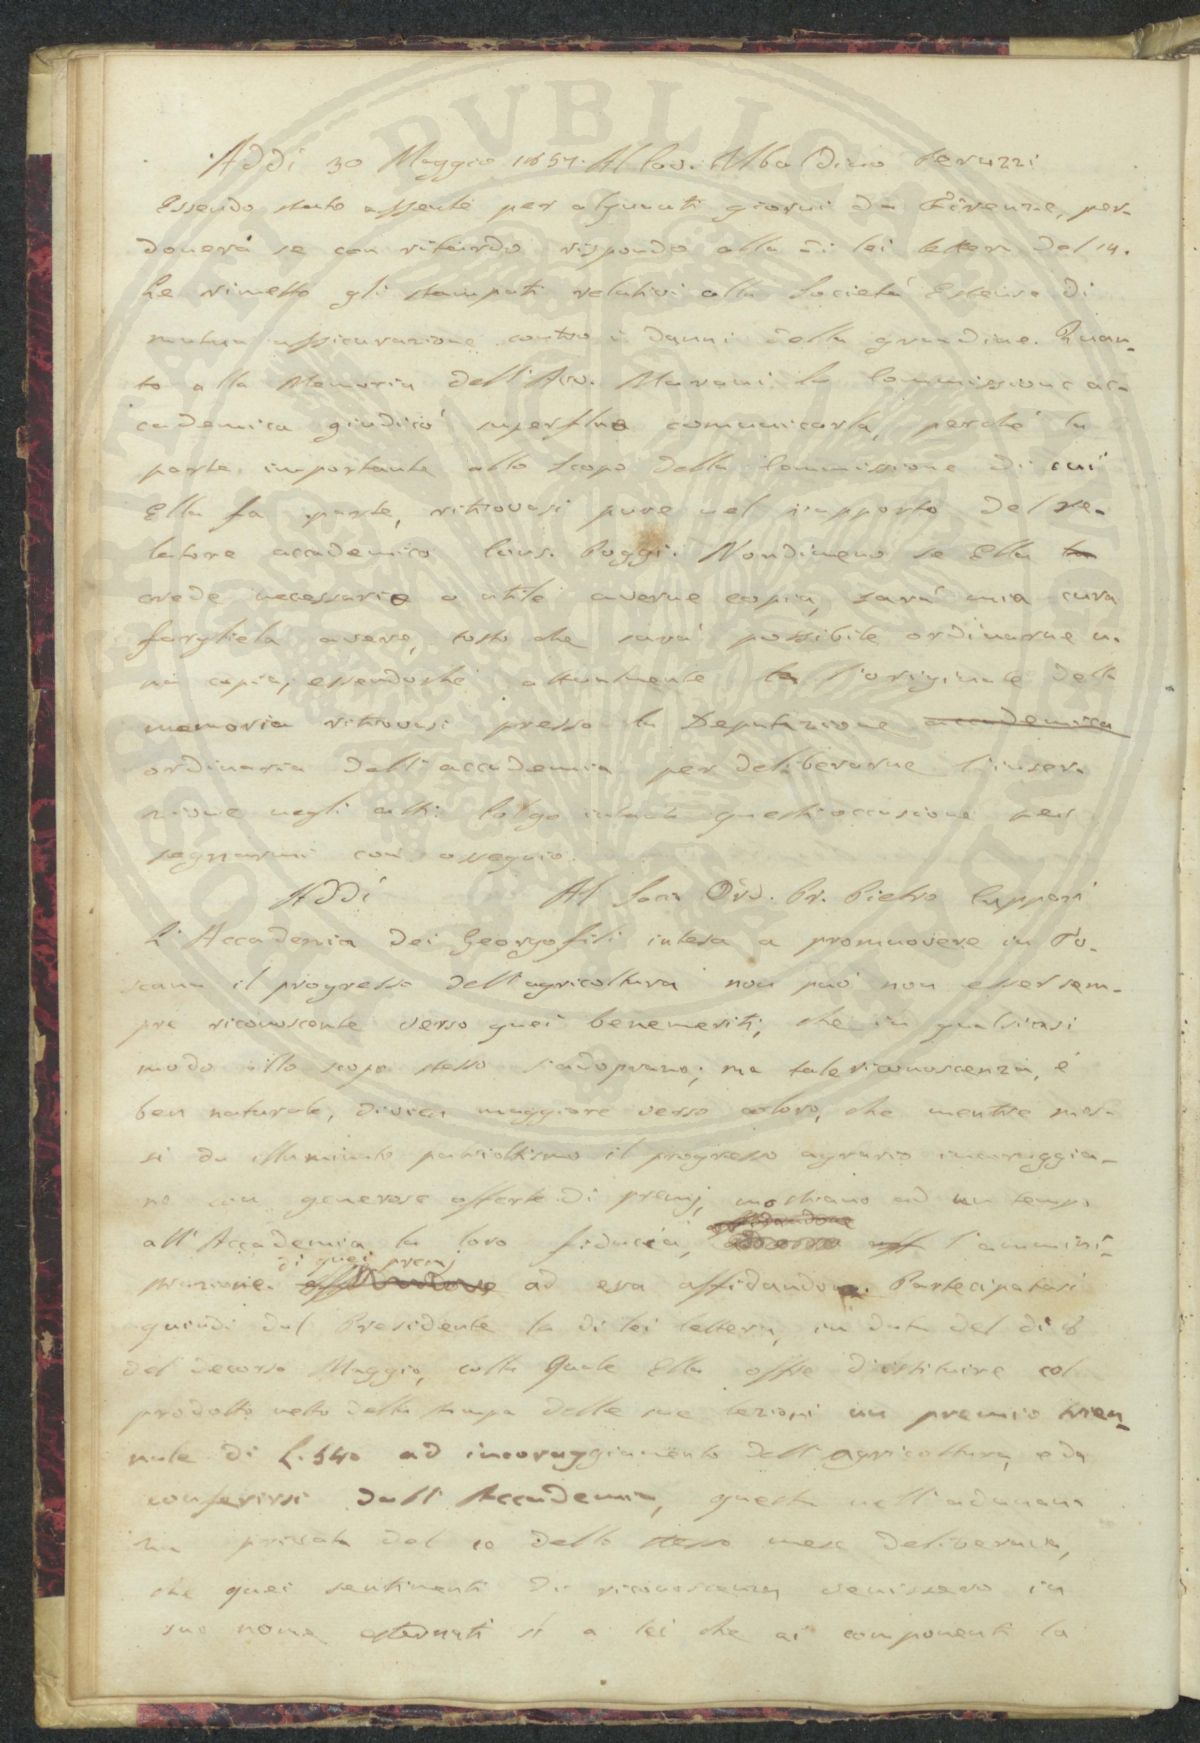 Addì 30 Maggio 1857. Al Cav. Ubaldino Peruzzi
Essendo stato assente per alquanti giorni da Firenze, per-
donerà se con ritardo rispondo alla di lei lettera del 14.
Le rimetto gli stampati relativi alla Società Estense di
mutua assicurazione contro i danni della grandine. Quan-
to alla Memoria dell'Avv. la Commissione ac-
cademica giudicò superfluo comunicarla, perché la
parte importante allo scopo della Commissione di cui
Ella fa parte, ritrovasi pure nel rapporto del re-
latore accademico Cons. Poggi. Nondimeno se Ella
crede necessario o utile averne copia, sarà mia cura
fargliela avere, tosto che sarà possibile ordinarne u-
na copia, essendoché attualmente l'originale della
memoria ritrovasi presso la Deputazione accademica
ordinaria dell'accademia per deliberarne l'inser-
zione negli atti. Colgo intanto quest'occasione per
segnarmi con ossequio.
Addì Al Socio Ord. Pr. Pietro Cuppari
L'Accademia dei Georgofili intesa a promuovere in To-
scana il progresso dell'agricoltura non può non esser sem-
pre riconoscente verso quei benemeriti, che in qualsiasi
modo allo scopo stesso s'adoprano; ma tale riconoscenza, è
ben naturale, divien maggiore verso coloro, che mentre mos-
si da illuminato patriottismo il progresso agrario incoraggia-
no con generose offerte di premj, mostrano ad un tempo
affidandone
all'Accademia la loro fiducia, l'ammini-
di quei premj
strazione ad essa affidando. Partecipatasi
quindi dal Presidente la di lei lettera, in data del dì 8
del decorso Maggio, colla quale Ella offre d'istituire col
prodotto netto della stampa delle sue lezioni un premio trien-
nale di L. 540 ad incoraggiamento dell'agricoltura, e da
conferirsi dall'Accademia, questa nell'adunan-
za privata del 10 dello stesso mese deliberava,
che quei sentimenti di riconoscenza venissero in
suo nome esternati sì a lei che ai componenti la